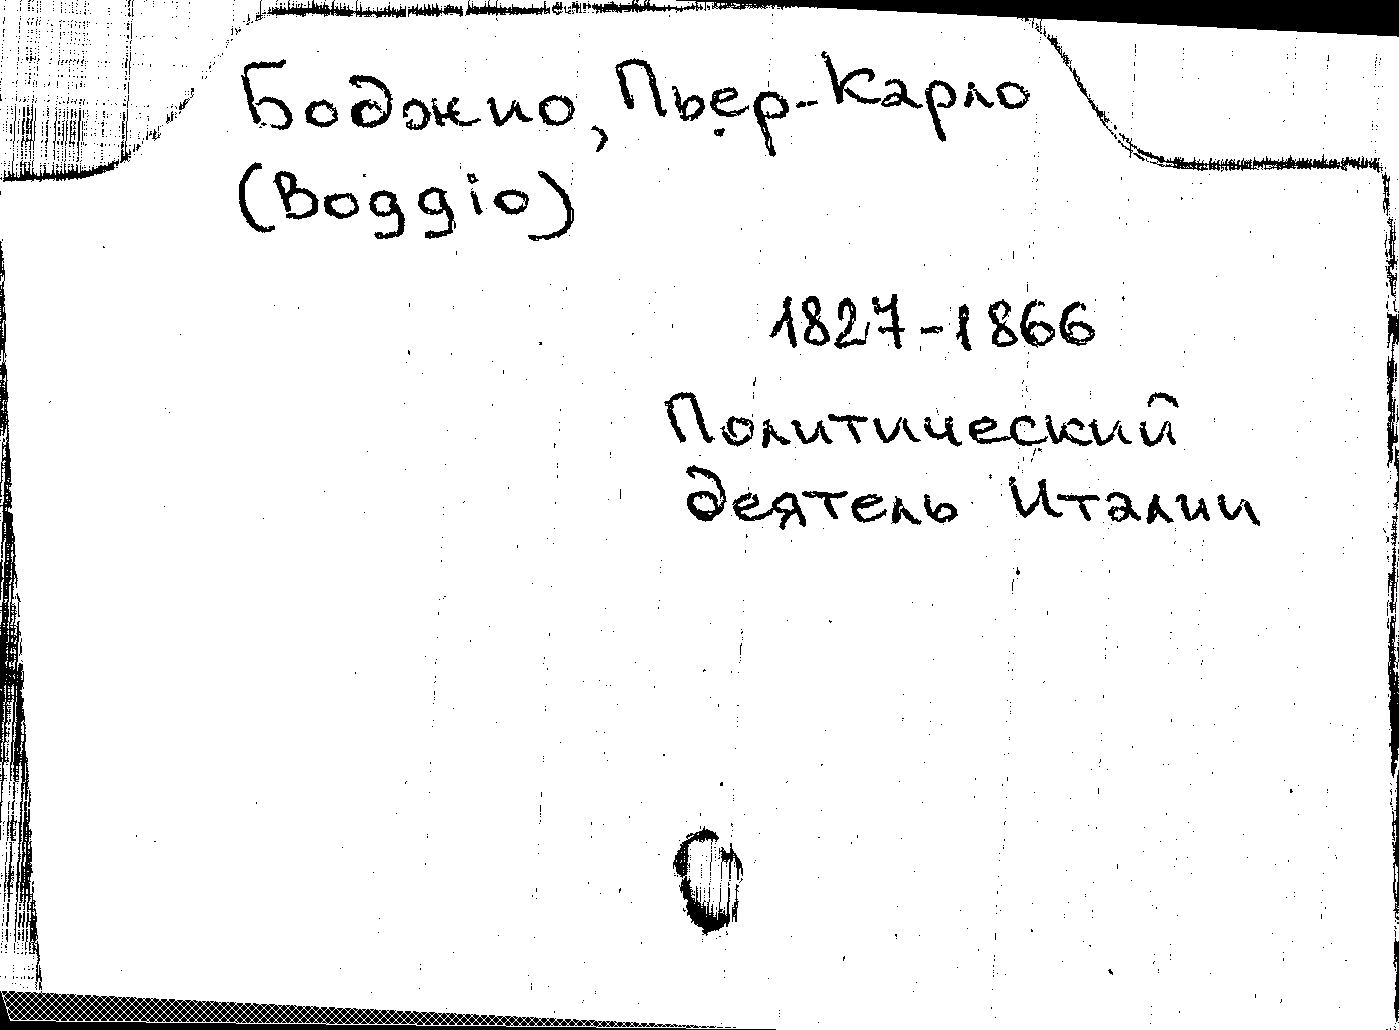 Боджио, Пьер-Карло
(Boggio)
1827-1866
Политический
деятель Италии